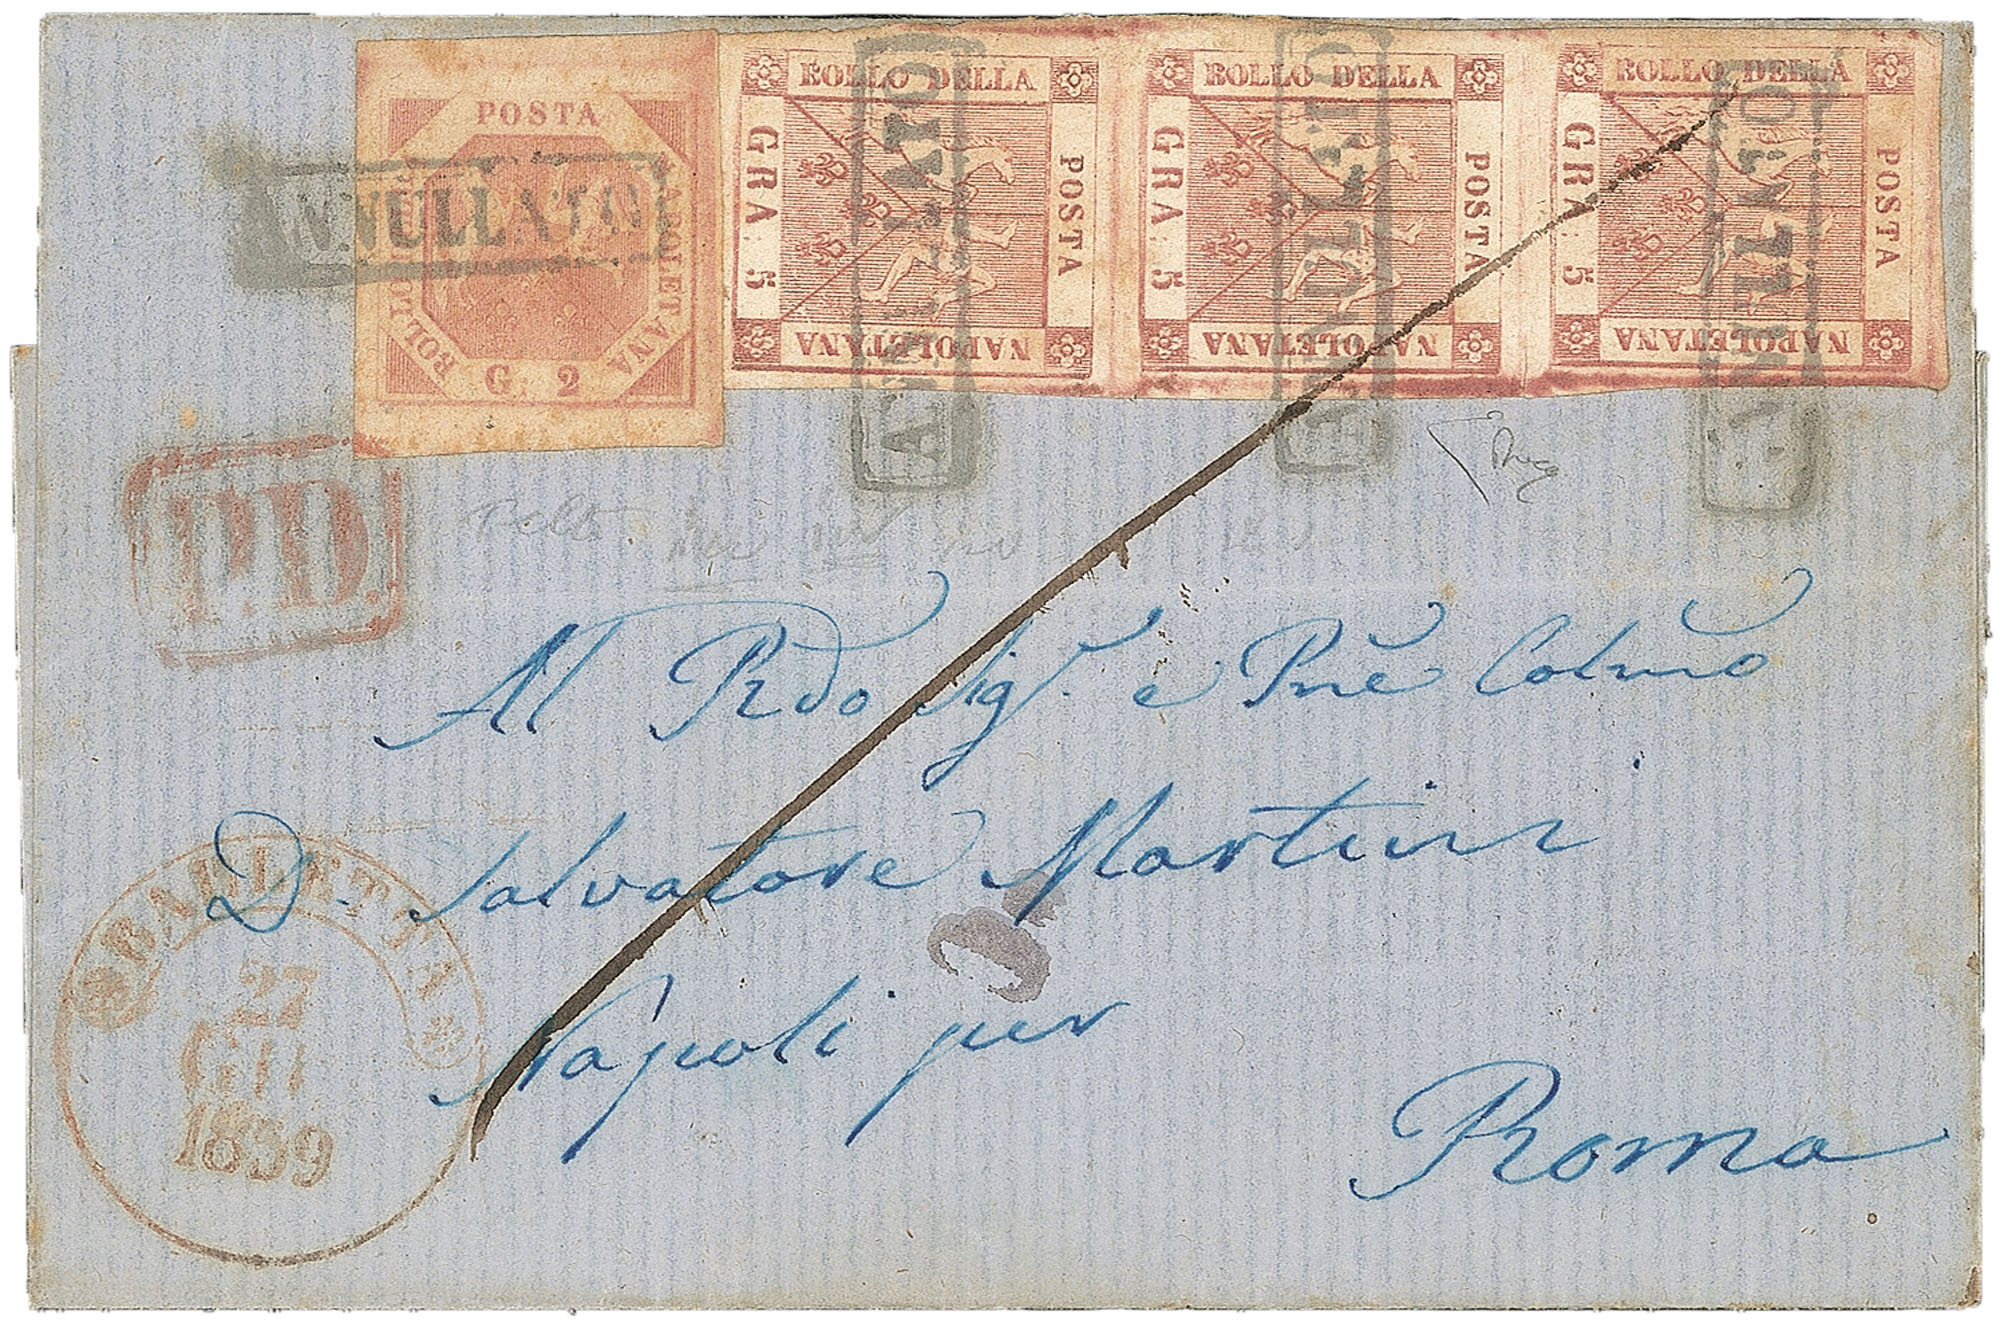 POSTA NAPOLETANA BOLLO G. 2
BOLLO DELLA POSTA NAPOLETANA GRA 5
BOLLO DELLA POSTA NAPOLETANA GRA 5
BOLLO DELLA POSTA NAPOLETANA GRA 5
ANNULLATO
ANNULLATO
ANNULLATO
ANNULLATO
P.D.
Al Rdo Sigr. e Pnē Colmō
D. Salvatore Martini
Napoli per
Roma
BARLETTA
27
GIU
1859